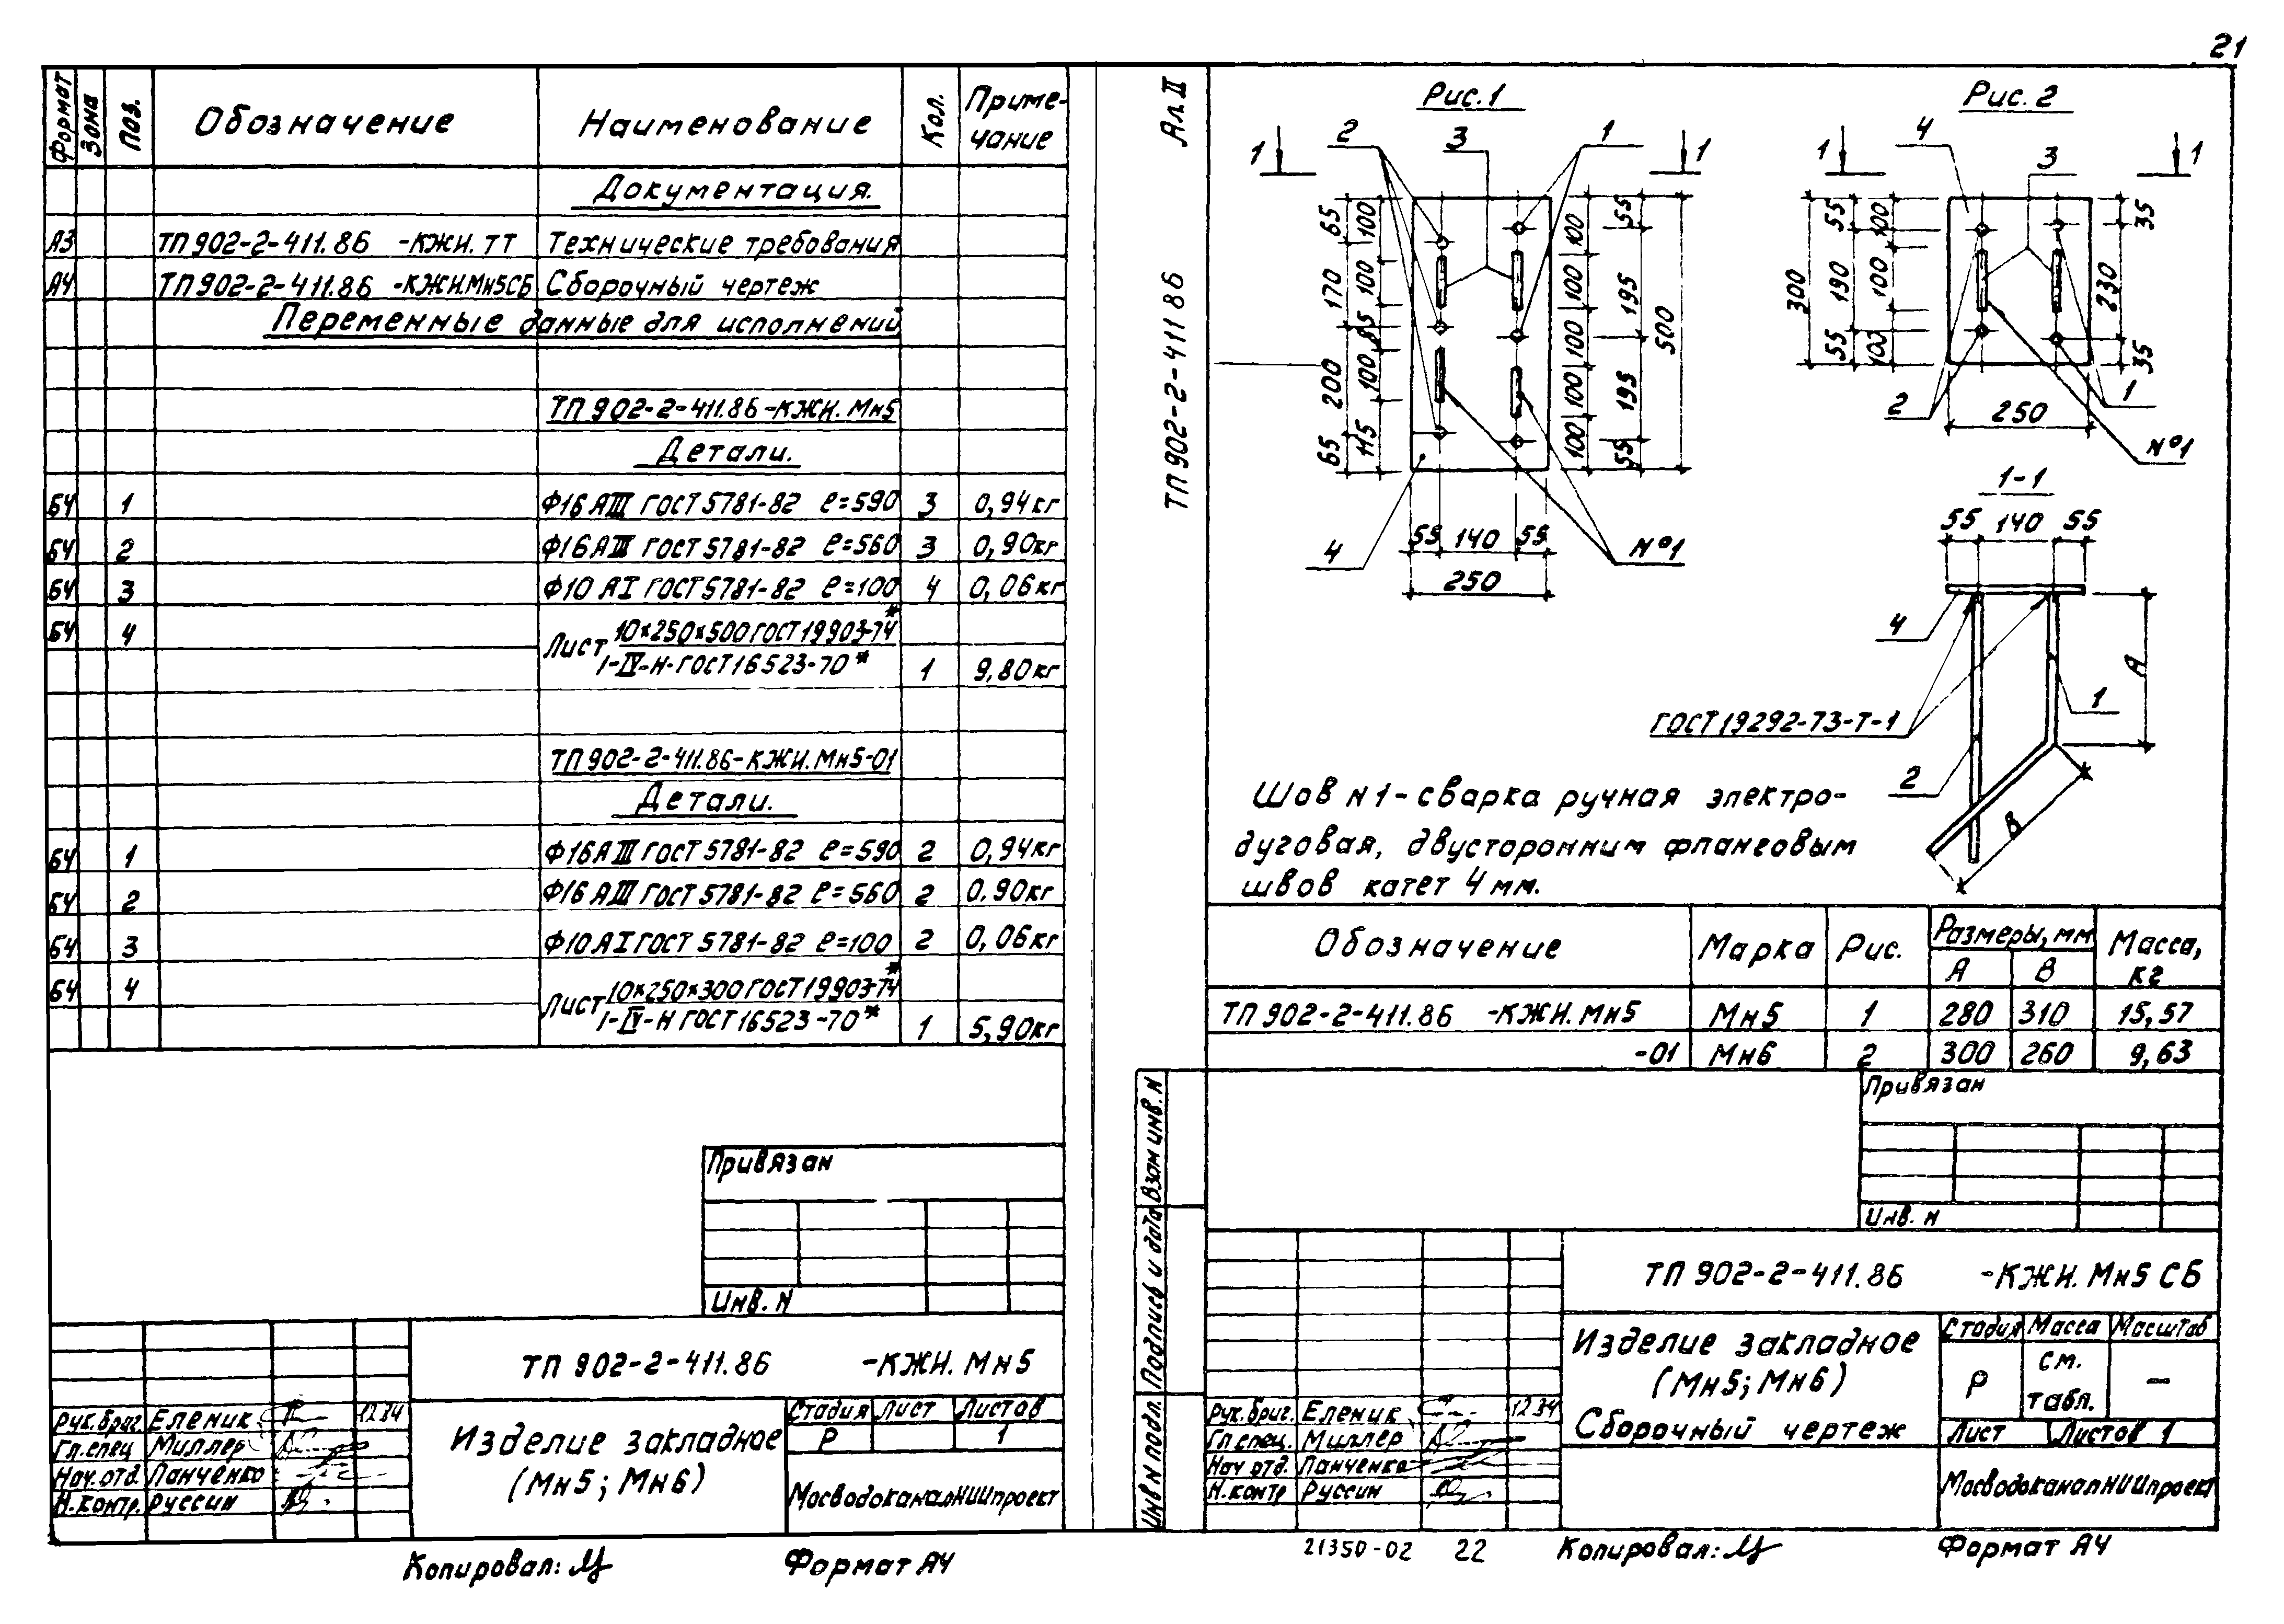 21
Формат Зона Поз. Обозначение Наименование Кол. Приме-
чание
Документация.
А3 ТП 902-2-411.86 -КЖИ. ТТ Технические требования
А4 ТП 902-2-411.86 -КЖИ.Мн5СБ Сборочный чертеж
Переменные данные для исполнений
ТП 902-2-411.86-КЖИ. Мн5
Детали.
БЧ 1 Ф16 АIII ГОСТ 5781-82 ℓ=590 3 0,94кг
БЧ 2 Ф16 АIII ГОСТ 5781-82 ℓ=560 3 0,90кг
БЧ 3 Ф10 АI ГОСТ 5781-82 ℓ=100 4 0,06кг
БЧ 4 Лист 10×250×500 ГОСТ 19903-74*
1-IV-Н-ГОСТ 16523-70* 1 9,80кг
ТП 902-2-411.86-КЖИ. Мн5-01
Детали.
БЧ 1 Ф16 АIII ГОСТ 5781-82 ℓ=590 2 0,94кг
БЧ 2 Ф16 АIII ГОСТ 5781-82 ℓ=560 2 0.90кг
БЧ 3 Ф10 АI ГОСТ 5781-82 ℓ=100 2 0,06кг
БЧ 4 Лист 10×250×300 ГОСТ 19903-74*
1-IV-Н ГОСТ 16523-70* 1 5,90кг
Привязан
Инв. N
ТП 902-2-411.86 -КЖИ. Мн5
Рук.бриг. Еленик 12.84
Гл.спец Миллер
Нач.отд. Панченко
Н.контр. Руссин
Изделие закладное
(Мн5; Мн6)
Стадия Лист Листов
Р 1
МосводоканалНИИпроект
Копировал:
Формат А4
Ал II
ТП 902-2-411 86
Рис. 1
1 2 3 1 1
65 170 200 65
100 100 85 100 115
100 100 100 100 100
55 195 195 55
500
55 140 55
250
4
N°1
Рис. 2
1 4 3 1
300
55 190 55
100 100 100
35 230 35
2 250 1
N°1
1-1
55 140 55
4
А
1
ГОСТ 19292-73-Т-1
2
В
Шов N1-сварка ручная электро-
дуговая, двусторонним фланговым
швов катет 4 мм.
Обозначение Марка Рис. Размеры, мм Масса,
кг
А В
ТП 902-2-411.86 -КЖИ. Мн5 Мн5 1 280 310 15,57
-01 Мн6 2 300 260 9,63
Привязан
Инв. N
Взам инв. N
Подпись и дата
Инв N подл.
ТП 902-2-411.86 -КЖИ. Мн5 СБ
Рук.бриг. Еленик 12 84
Гл.спец. Миллер
Нач отд. Панченко
Н.контр Руссин
Изделие закладное
(Мн5; Мн6)
Сборочный чертеж
Стадия Масса Масштаб
Р см.
табл. —
Лист Листов 1
МосводоканалНИИпроект
21350-02 22
Копировал:
Формат А4